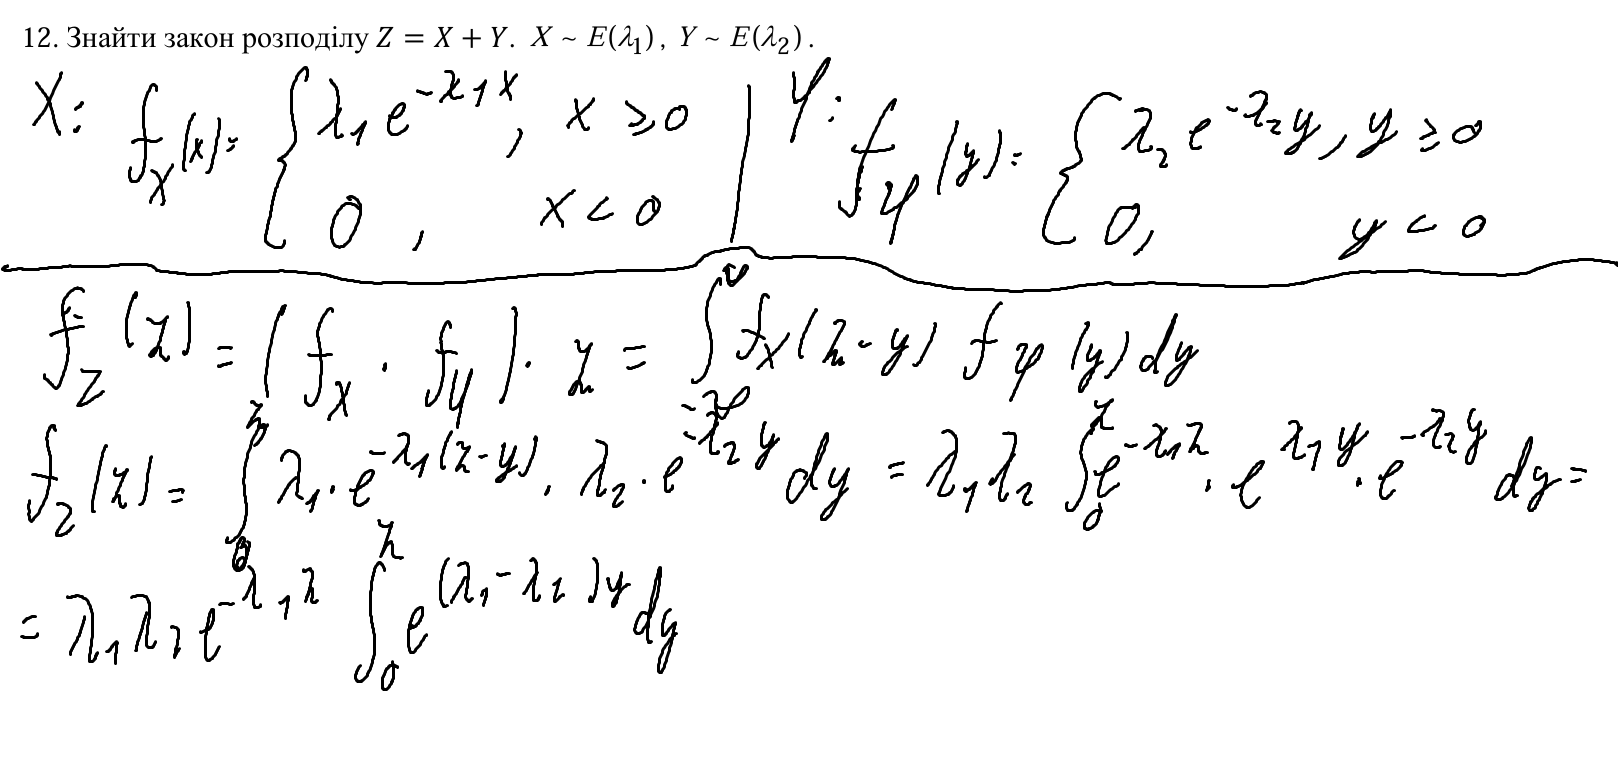 12. Знайти закон розподілу Z = X + Y. X ~ E(λ₁), Y ~ E(λ₂).
X: f_X(x) = { λ₁ e^{-λ₁x}, x ≥ 0 | Y: f_Y(y) = { λ₂ e^{-λ₂y}, y ≥ 0
0, x < 0 | 0, y < 0
f_Z(z) = (f_X · f_Y) · z = ∫_{-∞}^{∞} f_X(z-y) f_Y(y) dy
f_Z(z) = ∫_0^z λ₁ · e^{-λ₁(z-y)} · λ₂ · e^{-λ₂y} dy = λ₁λ₂ ∫_0^z e^{-λ₁z} · e^{λ₁y} · e^{-λ₂y} dy =
= λ₁λ₂ e^{-λ₁z} ∫_0^z e^{(λ₁-λ₂)y} dy